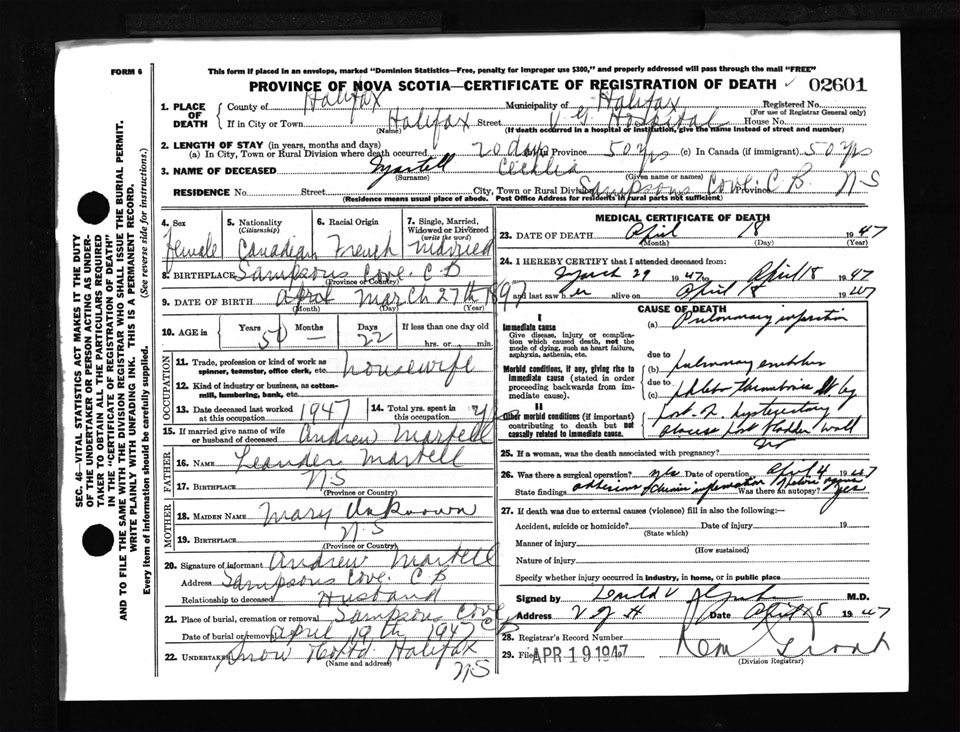 FORM 6
This form if placed in an envelope, marked "Dominion Statistics—Free, penalty for improper use $300," and properly addressed will pass through the mail "FREE"
PROVINCE OF NOVA SCOTIA—CERTIFICATE OF REGISTRATION OF DEATH 02601
1. PLACE OF DEATH
County of Halifax Municipality of Halifax Registered No.
(For use of Registrar General only)
If in City or Town Halifax Street V G Hospital House No.
(Name) (If death occurred in a hospital or institution, give the name instead of street and number)
2. LENGTH OF STAY (in years, months and days)
(a) In City, Town or Rural Division where death occurred 20 days Province 50 yrs (c) In Canada (if immigrant) 50 yrs
3. NAME OF DECEASED Martell Cecelia
(Surname) (Given name or names)
RESIDENCE No. Street City, Town or Rural Division Sampsons Cove. C B Province N S
(Residence means usual place of abode. Post Office Address for residents in rural parts not sufficient)
4. Sex Female
5. Nationality (Citizenship) Canadian
6. Racial Origin French
7. Single, Married, Widowed or Divorced (write the word) Married
8. BIRTHPLACE Sampsons Cove. C B
(Province or Country)
9. DATE OF BIRTH March 27th 1897
(Month) (Day) (Year)
10. AGE in Years 50 Months — Days 22 If less than one day old hrs. or min.
OCCUPATION
11. Trade, profession or kind of work as spinner, teamster, office clerk, etc. housewife
12. Kind of industry or business, as cotton-mill, lumbering, bank, etc.
13. Date deceased last worked at this occupation 1947
14. Total yrs. spent in this occupation
15. If married give name of wife or husband of deceased Andrew Martell
FATHER
16. NAME Leander Martell
17. BIRTHPLACE N S
(Province or Country)
MOTHER
18. MAIDEN NAME Mary Unknown
19. BIRTHPLACE N S
(Province or Country)
20. Signature of informant Andrew Martell
Address Sampsons Cove. C B
Relationship to deceased Husband
21. Place of burial, cremation or removal Sampsons Cove C B
Date of burial or removal April 19th 1947
22. Undertaker Snow & Co Ltd Halifax
(Name and address) N S
MEDICAL CERTIFICATE OF DEATH
23. DATE OF DEATH April 18 1947
(Month) (Day) (Year)
24. I HEREBY CERTIFY that I attended deceased from:
March 29 1947 to April 18 1947
and last saw her alive on April 18 1947
CAUSE OF DEATH
I
Immediate cause
Give disease, injury or complication which caused death, not the mode of dying, such as heart failure, asphyxia, asthenia, etc.
(a) Pulmonary infarction
due to
Morbid conditions, if any, giving rise to immediate cause (stated in order proceeding backwards from immediate cause).
(b) pulmonary embolus
due to
(c) phlebo thrombosis lt leg
II
Other morbid conditions (if important) contributing to death but not causally related to immediate cause.
abscess post bladder wall
25. If a woman, was the death associated with pregnancy? no
26. Was there a surgical operation? yes Date of operation April 4 1947
State findings adhesions chronic inflammation Was there an autopsy? yes
27. If death was due to external causes (violence) fill in also the following:—
Accident, suicide or homicide? Date of injury 19
(State which)
Manner of injury
(How sustained)
Nature of injury
Specify whether injury occurred in industry, in home, or in public place
Signed by M.D.
Address V G H Date April 18 1947
28. Registrar's Record Number
29. Filed APR 19 1947
(Division Registrar)
SEC. 46—VITAL STATISTICS ACT MAKES IT THE DUTY
OF THE UNDERTAKER OR PERSON ACTING AS UNDER-
TAKER TO OBTAIN ALL THE PARTICULARS REQUIRED
IN THE "CERTIFICATE OF REGISTRATION OF DEATH"
AND TO FILE THE SAME WITH THE DIVISION REGISTRAR WHO SHALL ISSUE THE BURIAL PERMIT.
WRITE PLAINLY WITH UNFADING INK. THIS IS A PERMANENT RECORD.
Every item of information should be carefully supplied. (See reverse side for instructions.)